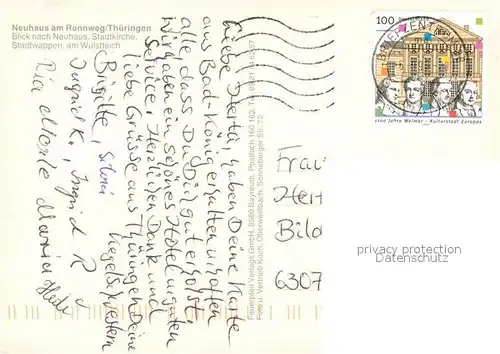 Neuhaus am Rennweg/Thüringen
Blick nach Neuhaus, Stadtkirche,
Stadtwappen, am Wulstteich
Liebe Herta, haben Deine Karte
aus Bad-König erhalten u. hoffen
alle dass Du Dich gut erholst.
Wir haben ein schönes Hotel u. guten
Service. Herzlichen Dank und
liebe Grüsse aus Thüringen Deine
Kegelschwestern
Brigitte, Silvia
Ingrid K., Ingrid R
Ria
Maria
Feuerpfeil Verlags GmbH, 8580 Bayreuth, Postfach 160 162, Tel.
Foto u. Vertrieb Koch, Oberweißbach, Sonneberger Str. 72
100
BRIEFZENTRUM
1100 Jahre Weimar – Kulturstadt Europas
Frau
Hert
Bild
6307
privacy protection
Datenschutz